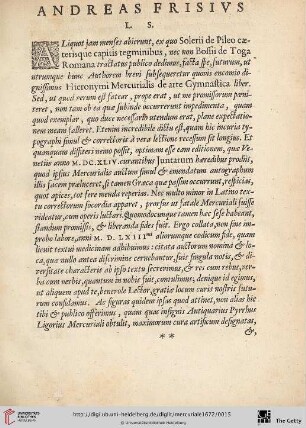 ANDREAS FRISIUS
L. S.
ALiquot jam menses abierunt, ex quo Solerii de Pileo cæ-
terisque capitis tegminibus, nec non Bossii de Toga
Romana tractatus publico dedimus, facta spe, futurum, ut
utrumque hunc Authorem brevi subsequeretur quovis encomio di-
gnissimus Hieronymi Mercurialis de arte Gymnastica liber.
Sed, ut quod rerum est satear, prope erat, ut non promissarum peni-
teret, tam ob ea quæ subinde occurrerunt impedimenta, quam
quod exemplar, quo duce necessariò utendum erat, plane expectatio-
nem meam falleret. Etenim incredibile dictu est, quam hic incuria ty-
pographi simul & correctoris à vera lectione recessum sit longius. Et
quanquam dissiteri nemo possit, optimam esse eam editionem, qua Ve-
netiis anno M. DC.XLIV. curantibus Juntarum hæredibus prodiit,
quod ipsius Mercurialis auctum simul & emendatum autographum
illis facem præluceret, si tamen Græca quæ passim occurrunt, respicias,
quot apices, tot fere menda repertas. Nec multo minor in Latino textu
correctorum socordia apparet, prorsus ut fatale Mercuriali fuisse
videatur, cum operis luctari. Quomodocunque tamen hæc sese habeant,
standum promissis, & liberanda fides fuit. Ergo collata, non sine im-
probo labore, anni M. D. LXIII. aliorumque codicum
textui medicinam adhibuimus: citata auctorum nomina & lo-
ca, quæ nullo antea discrimine cernebantur, suis singula notis, & di-
versitate characteris ab ipso textu secrevimus, & res cum rebus, ver-
ba cum verbis, quantum in nobis fuit, contulimus, denique id egimus,
ut aliquem apud te, benevole Lector, gratiæ locum curis nostris futu-
rum confidamus. Ac figuras quidem ipsas quod attinet, non alias hic
tibi publico offerimus, quam quas insignis Antiquarius Pyrrhus
Ligorius Mercuriali obtulit, maximorum cura artificum designatas,
* * &,
http://digi.ub.uni-heidelberg.de/diglit/mercuriale1672/0015
© Universitätsbibliothek Heidelberg
The Getty